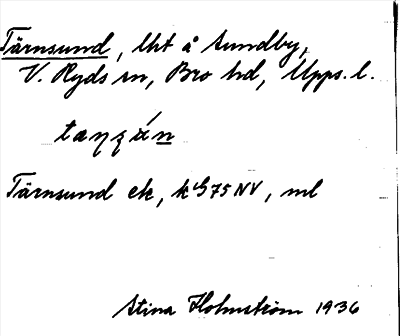 Tärnsund, lht å Sundby,
V. Ryds sn, Bro hd, Upps. l.
Tärnsund ek, k bl 75 NV, ml
Stina Holmström 1936